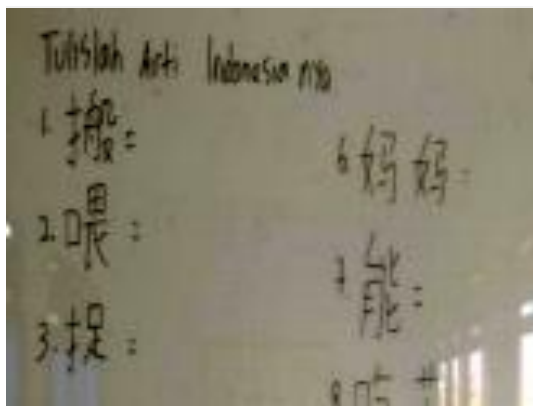 Tulislah Arti Indonesia nya
1. 搬 =
2. 喂 =
3. 捉 =
6. 妈妈 =
7. 能 =
8.